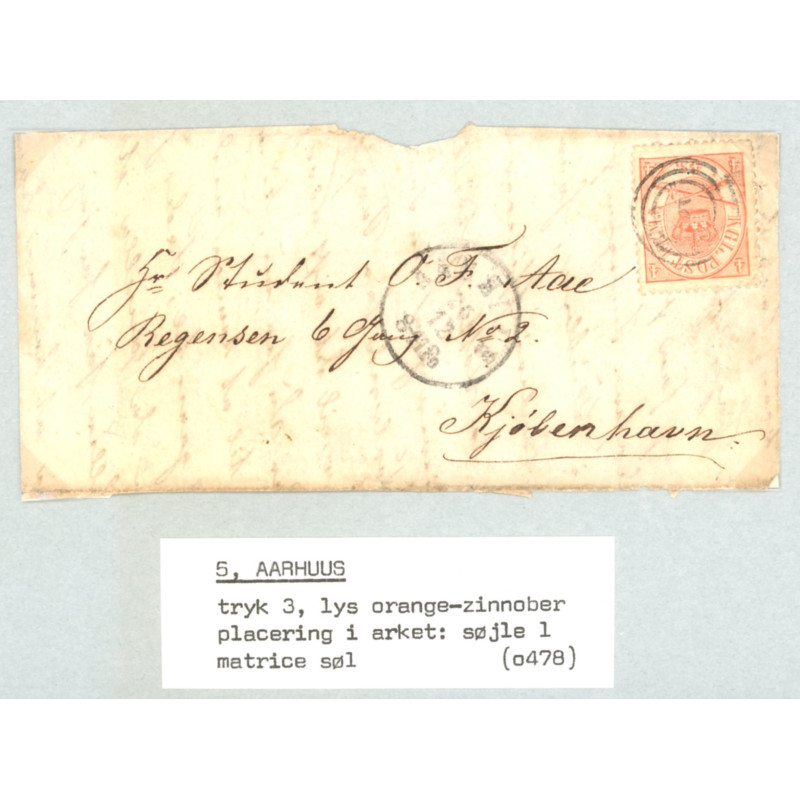 Hr Student O. F. Aae
Regensen 6 Gang No 2.
Kjöbenhavn
5, AARHUUS
tryk 3, lys orange-zinnober
placering i arket: søjle 1
matrice søl (o478)